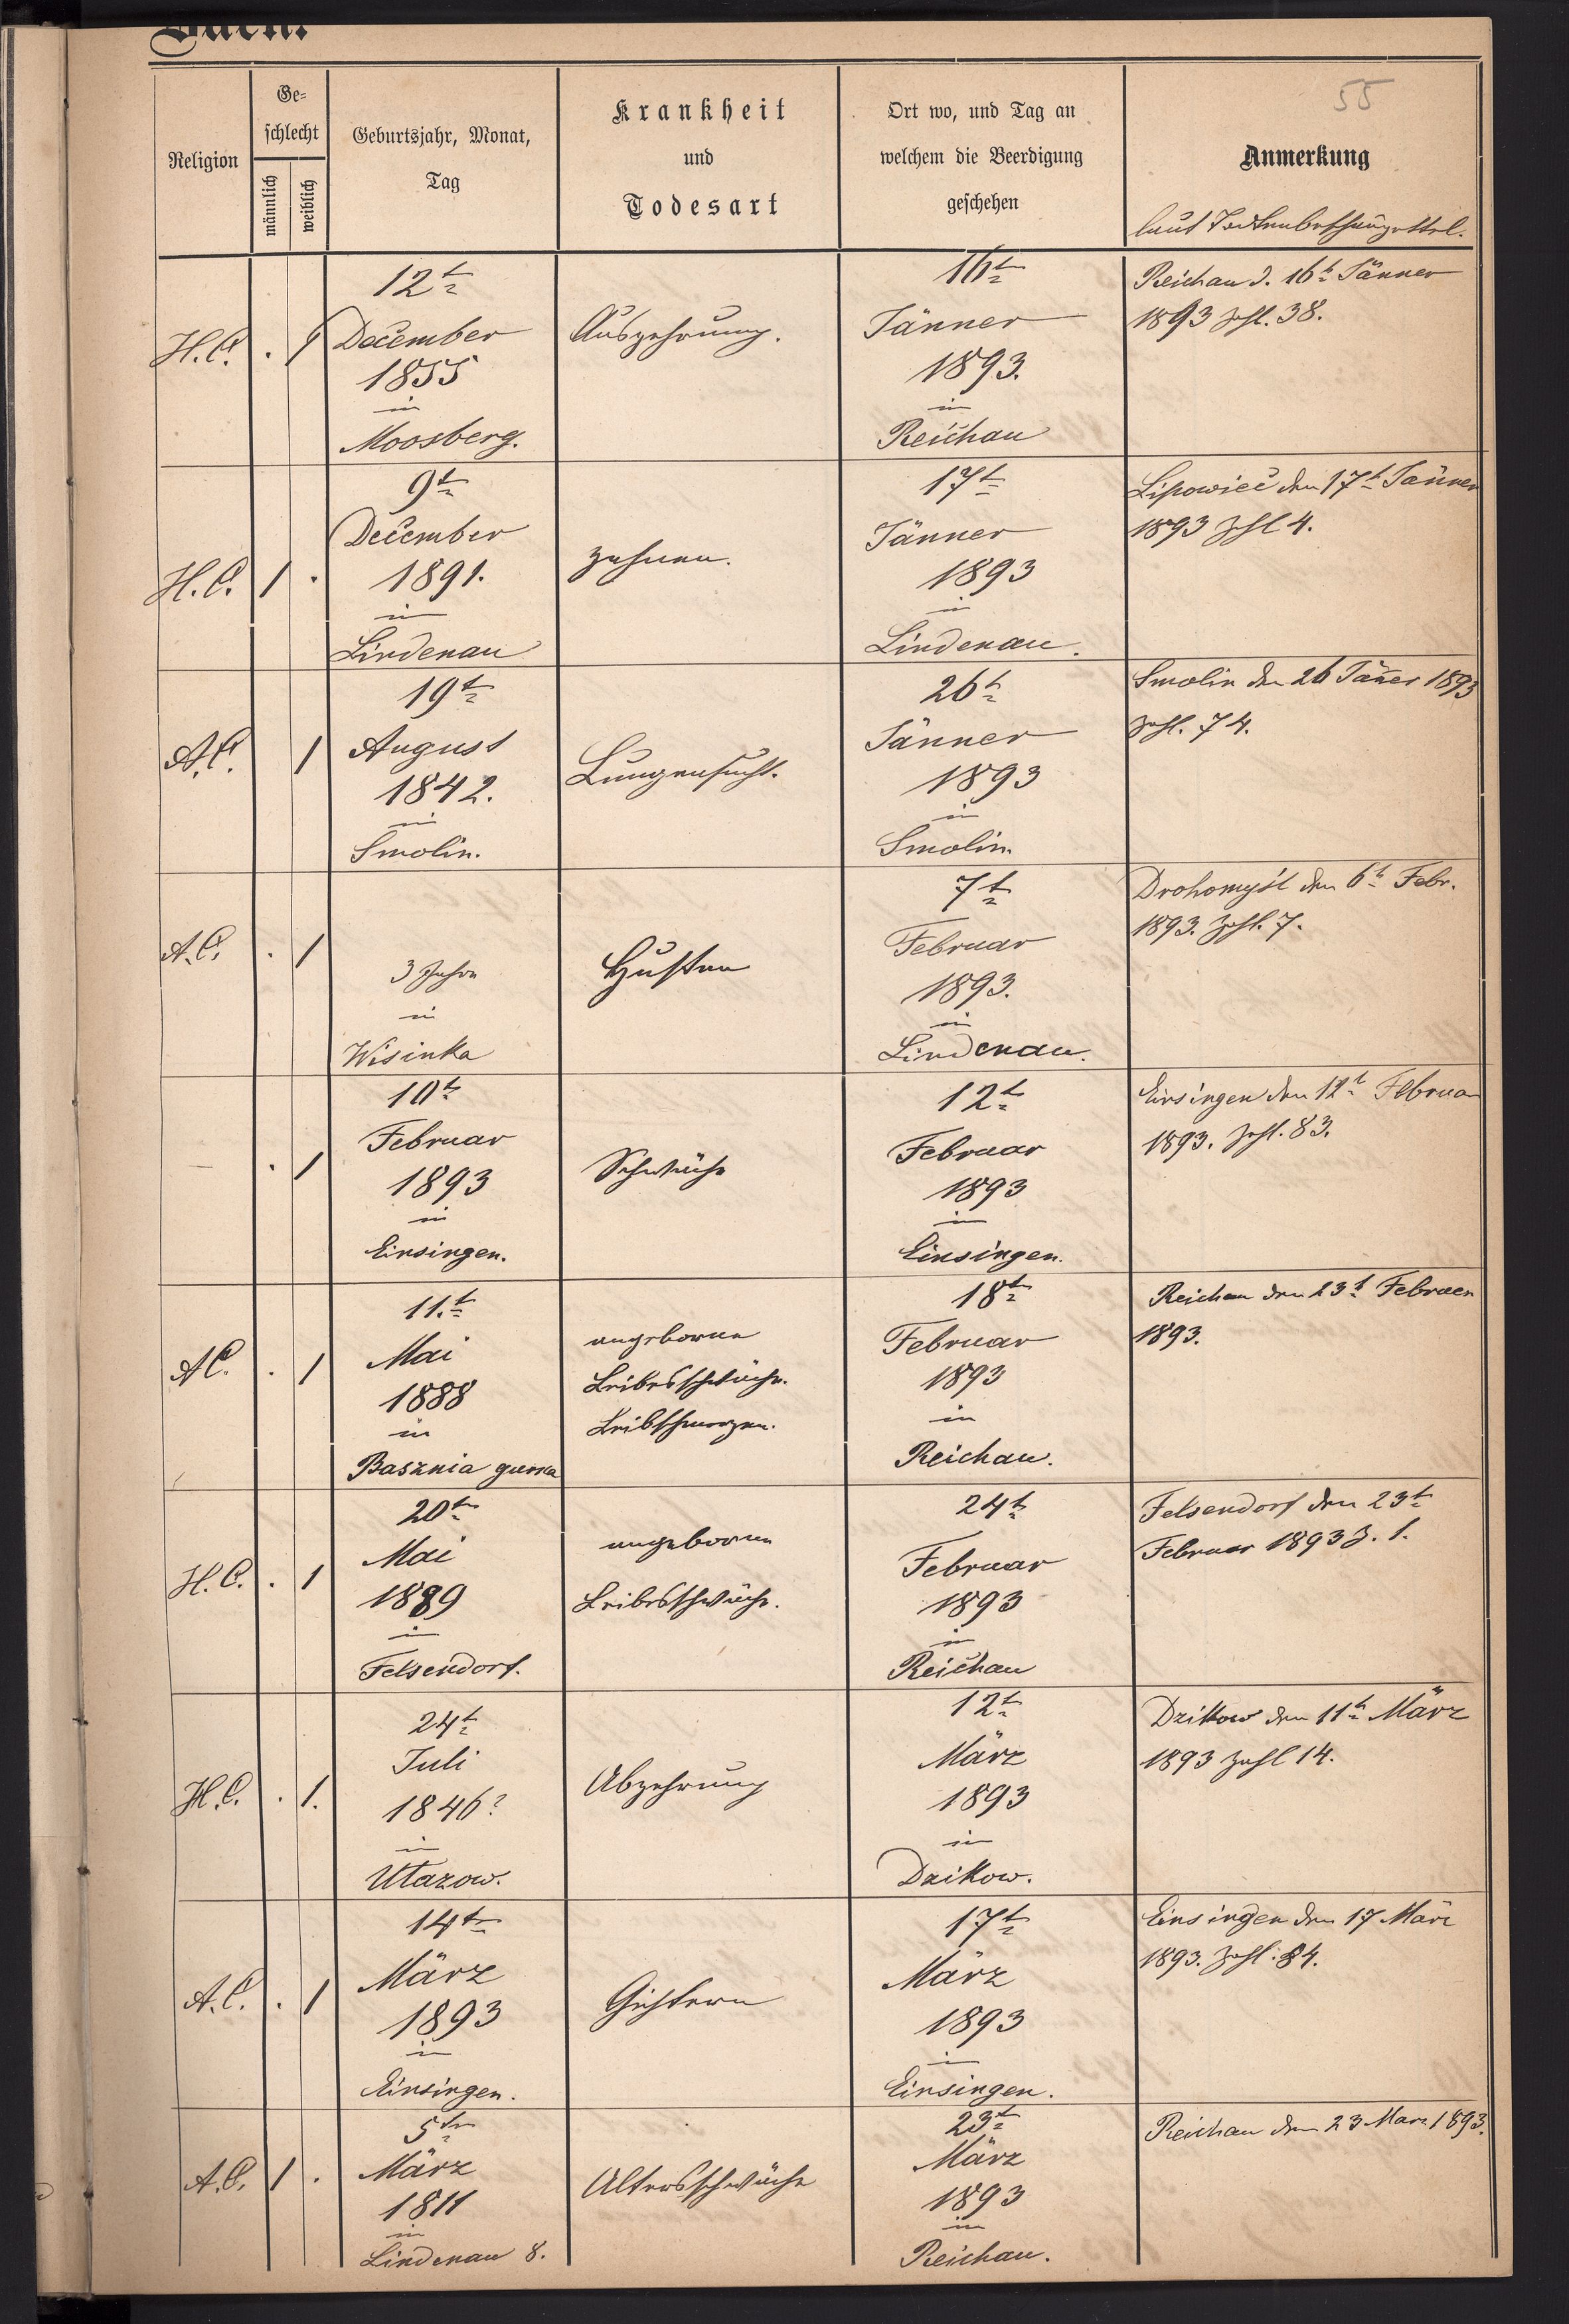 55
Religion
Ge=
schlecht
männlich
weiblich
Geburtsjahr, Monat,
Tag
Krankheit
und
Todesart
Ort wo, und Tag an
welchem die Beerdigung
geschehen
Anmerkung
laut Todtenbeschauzettel.
H.C. . 1
12t
December
1855
in
Moosberg.
Auszehrung.
16t
Jänner
1893.
in
Reichau
Reichau d. 16t Jänner
1893 Zahl. 38.
H.C. 1 .
9t
December
1891.
in
Lindenau
zahnen.
17t
Jänner
1893
in
Lindenau.
Lipowiec den 17t Jänner
1893 Zahl 4.
A.C. 1
19t
August
1842.
in
Smolin.
Lungensucht.
26t
Jänner
1893
in
Smolin.
Smolin den 26 Jäner 1893
Zahl. 74.
A.C. . 1
3 Jahre
in
Wisinka
Husten
7t
Februar
1893.
in
Lindenau.
Drohomyśl den 6t Febr.
1893. Zahl. 7.
— . 1
10t
Februar
1893
in
Einsingen.
Schwäche
12t
Februar
1893
in
Einsingen.
Einsingen den 12t Februar
1893. Zahl. 83.
A.C. . 1
11.t
Mai
1888
in
Basznia gurna
angeborne
Leibesschwäche.
Leibschmerzen.
18t
Februar
1893
in
Reichau.
Reichau den 23t Februar
1893.
H.C. . 1
20t
Mai
1889
in
Felsendorf.
angeborne
Leibesschwäche.
24t
Februar
1893
in
Reichau
Felsendorf den 23t
Februar 1893 Z. 1.
H.C. . 1.
24t
Juli
1846?
in
Utazow.
Abzehrung
12t
März
1893
in
Dzikow.
Dzikow den 11t März
1893 Zahl 14.
A.C. . 1
14t
März
1893
in
Einsingen.
Gichtern
17t
März
1893
in
Einsingen.
Einsingen den 17 März
1893. Zahl: 84.
A.C. 1 .
5t
März
1811
in
Lindenau 8.
Altersschwäche
23t
März
1893
in
Reichau.
Reichau den 23 Marz 1893.